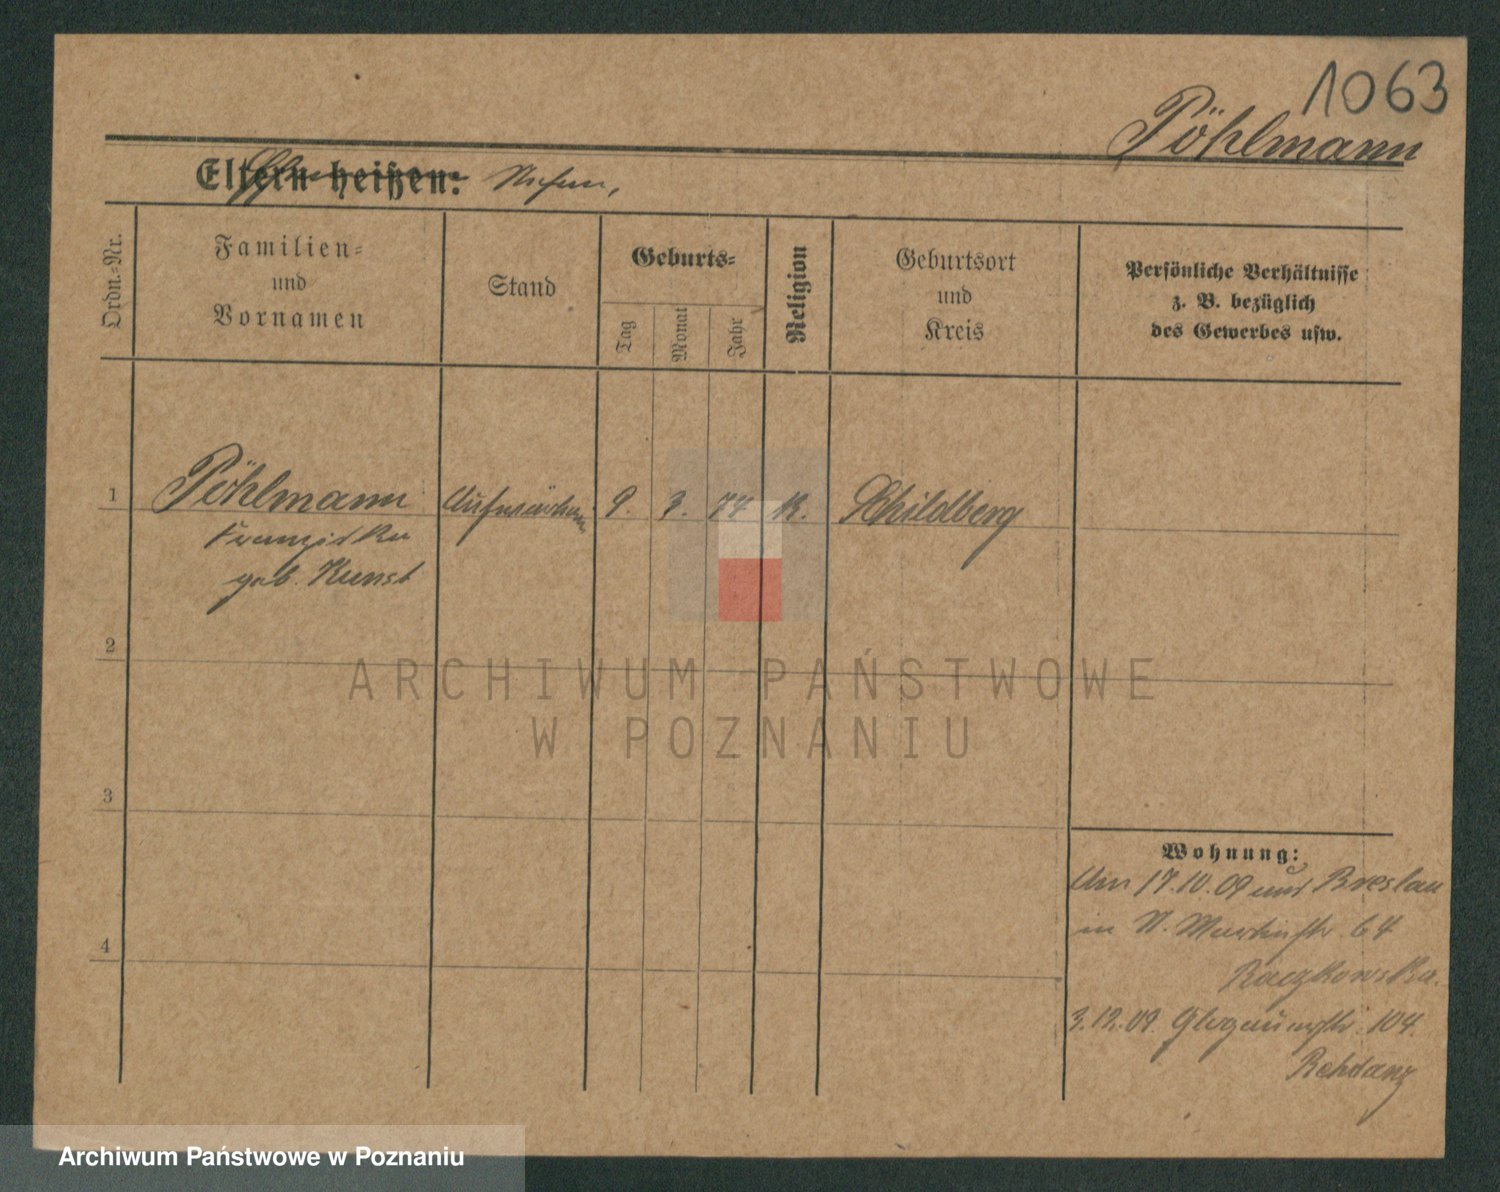 1063
Pöhlmann
Eltern heißen:
Ordn.-Nr.
Familien-
und
Vornamen
Stand
Geburts-
Tag
Monat
Jahr
Religion
Geburtsort
und
Kreis
Persönliche Verhältnisse
z. B. bezüglich
des Gewerbes usw.
1
Pöhlmann
Franziska
geb. Kunst
Aufwärterin
9. 3. 74
K.
Schildberg
2
3
4
Wohnung:
Am 17.10.09 aus Breslau
in St. Martinstr 64
Raczkowska.
3.12.09. Glogauerstr. 104.
Rehdanz
ARCHIWUM PAŃSTWOWE
W POZNANIU
Archiwum Państwowe w Poznaniu